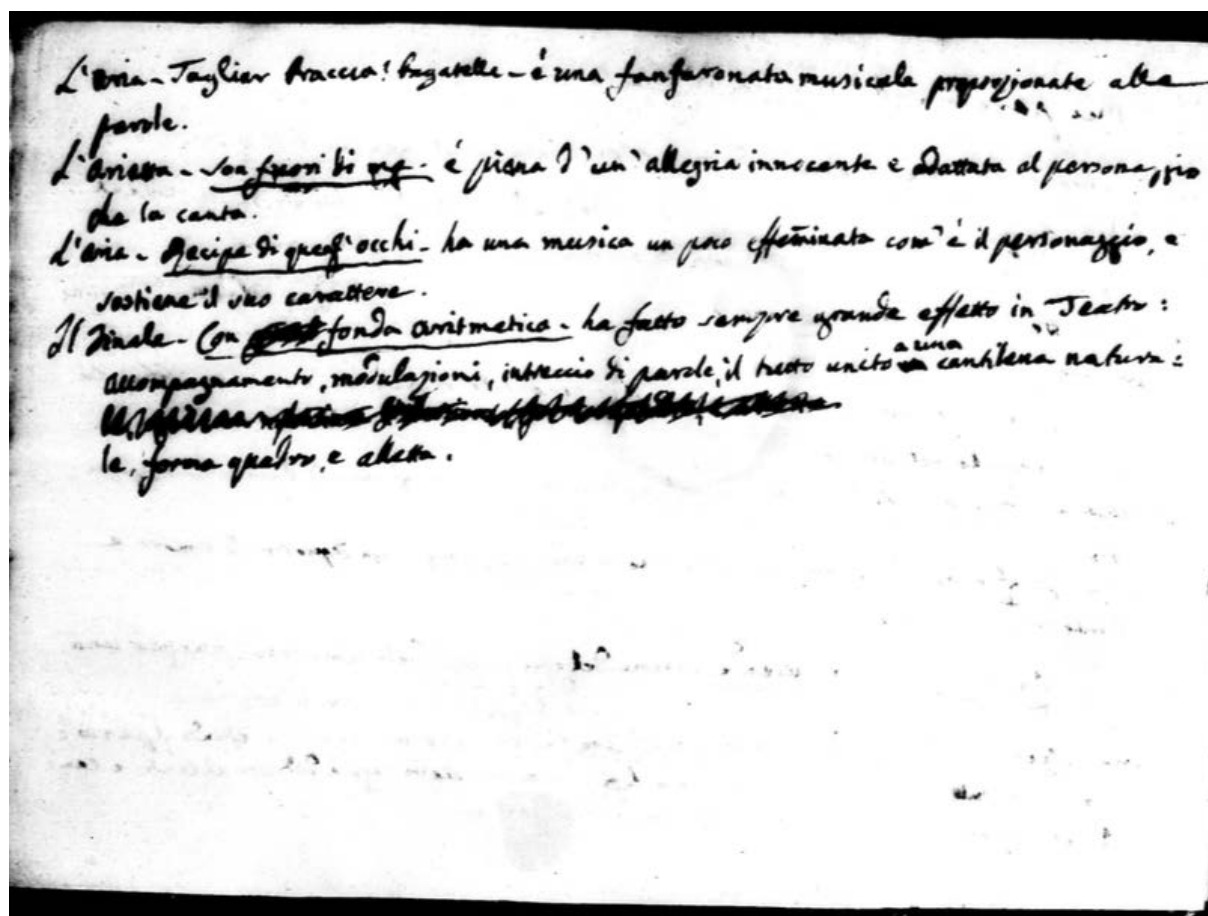 L'aria - Taglier braccia! bagatelle - è una fanfaronata musicale proporzionate alle
parole.
L'arietta - son fuori di me - è piena d'un'allegria innocente e adattata al personaggio
che la canta.
L'aria - Recipe di quegl'occhi - ha una musica un poco effeminata com'è il personaggio, e
sostiene il suo carattere.
Il Finale - Con fonda aritmetica - ha fatto sempre grande effetto in Teatro:
accompagnamento, modulazioni, intreccio di parole, il tutto unito a una cantilena natura:
le, forma quadro, e alletta.